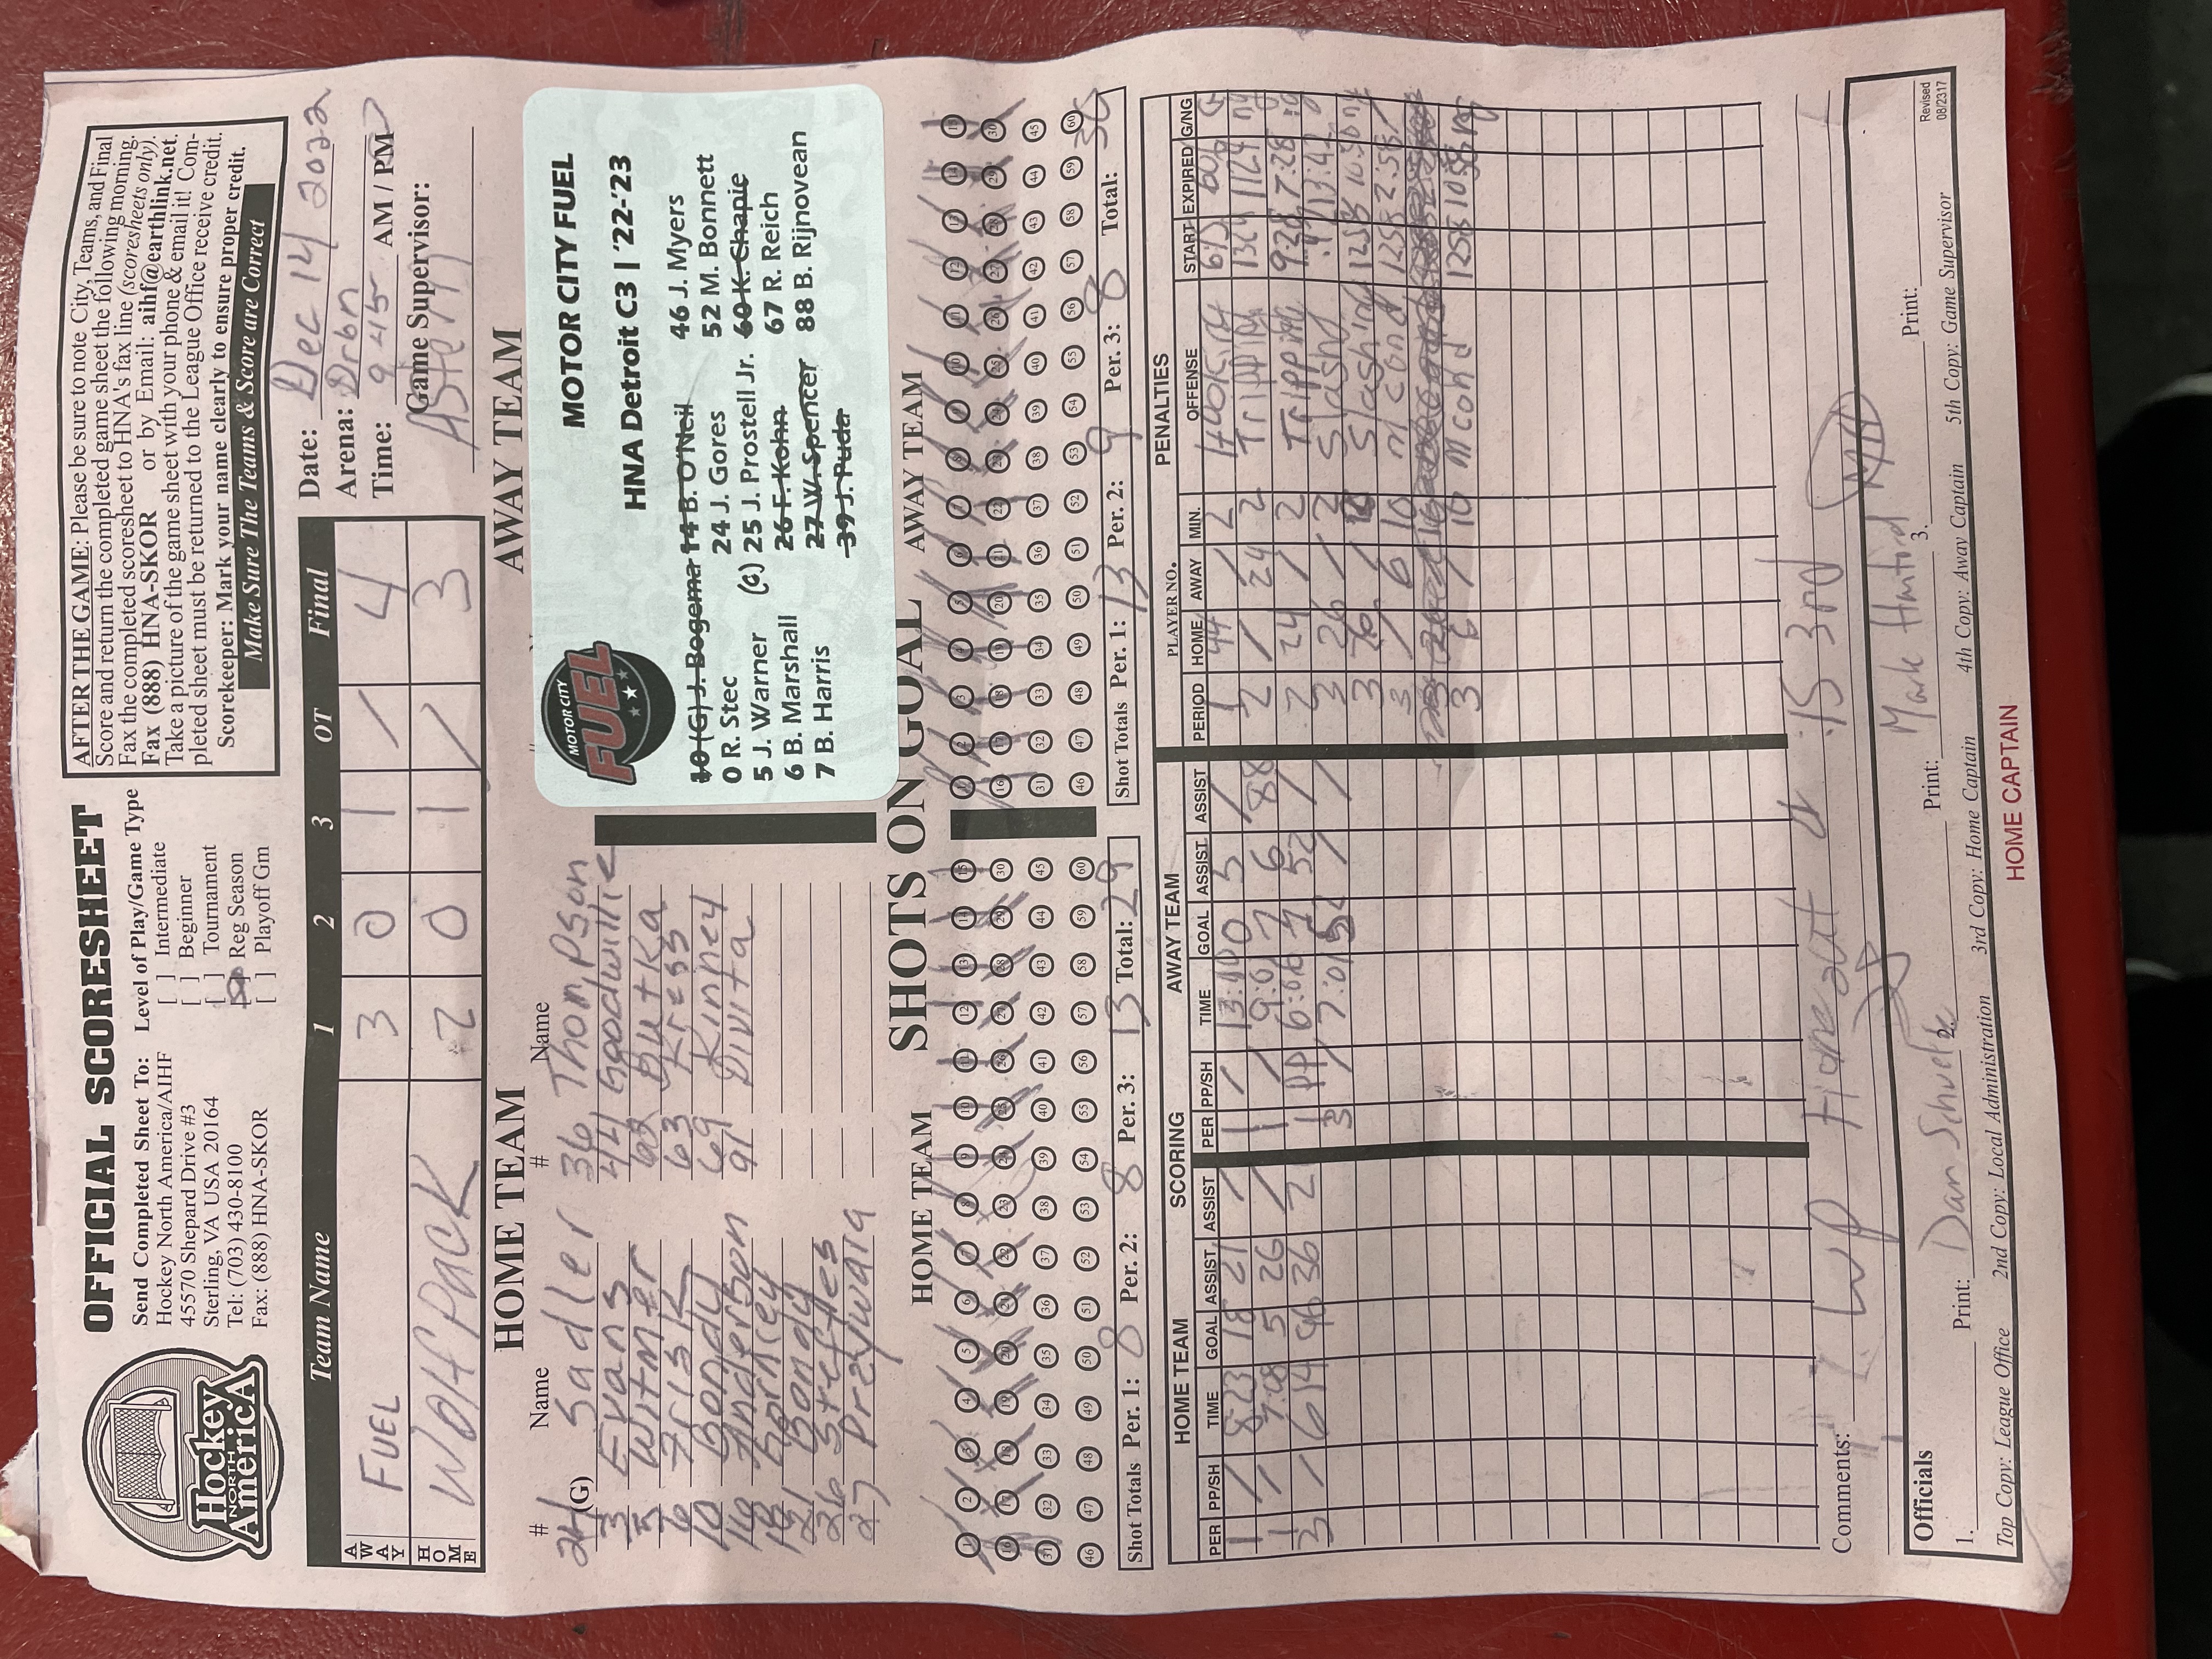 OFFICIAL SCORESHEET
Hockey
NORTH
AmericA
Send Completed Sheet To:
Hockey North America/AIHF
45570 Shepard Drive #3
Sterling, VA USA 20164
Tel: (703) 430-8100
Fax: (888) HNA-SKOR
Level of Play/Game Type
[ ] Intermediate
[ ] Beginner
[ ] Tournament
Reg Season
[ ] Playoff Gm
AFTER THE GAME: Please be sure to note City, Teams, and Final
Score and return the completed game sheet the following morning.
Fax the completed scoresheet to HNA's fax line (scoresheets only).
Fax (888) HNA-SKOR or by Email: aihf@earthlink.net.
Take a picture of the game sheet with your phone & email it! Com-
pleted sheet must be returned to the League Office receive credit.
Scorekeeper: Mark your name clearly to ensure proper credit.
Make Sure The Teams & Score are Correct
Team Name 1 2 3 OT Final
AWAY FUEL 3 0 1 / 4
HOME Wolfpack 2 0 1 / 3
Date: Dec 14 2022
Arena: Drbn
Time: 945 AM / PM
Game Supervisor:
HOME TEAM
# Name # Name
(G) Sadler 36 Thompson
3 Evans 44 Goodwillie
5 Witmer 62 Dutka
6 Fisk 63 Kress
10 Bondy 69 Kinney
Anderson 91 Divita
Barnkey
21 Bondy
26 Steftes
27 Dreyward
AWAY TEAM
MOTOR CITY
FUEL
MOTOR CITY FUEL
HNA Detroit C3 | '22-'23
10 (G) J. Bogema
0 R. Stec
5 J. Warner
6 B. Marshall
7 B. Harris
14 B. O'Neil
24 J. Gores
(G) 25 J. Prostell Jr.
26 F. Kohn
27 W. Spencer
39 J. Puda
46 J. Myers
52 M. Bonnett
60 K. Chapie
67 R. Reich
88 B. Rijnovean
SHOTS ON GOAL
HOME TEAM
AWAY TEAM
1 2 3 4 5 6 7 8 9 10 11 12 13 14 15
16 17 18 19 20 21 22 23 24 25 26 27 28 29 30
31 32 33 34 35 36 37 38 39 40 41 42 43 44 45
46 47 48 49 50 51 52 53 54 55 56 57 58 59 60
Shot Totals Per. 1: 8 Per. 2: 8 Per. 3: 13 Total: 29
1 2 3 4 5 6 7 8 9 10 11 12 13 14 15
16 17 18 19 20 21 22 23 24 25 26 27 28 29 30
31 32 33 34 35 36 37 38 39 40 41 42 43 44 45
46 47 48 49 50 51 52 53 54 55 56 57 58 59 60
Shot Totals Per. 1: 13 Per. 2: 9 Per. 3: 8 Total: 30
SCORING
HOME TEAM
PER PP/SH TIME GOAL ASSIST ASSIST
1 / 8:23 18 21 /
1 / 7:08 5 26 /
3 / 614 46 36 2
AWAY TEAM
PER PP/SH TIME GOAL ASSIST ASSIST
1 / 13:40 0 5 /
1 / 9:07 7 6 88
1 PP 6:06 7 52 /
3 / 7:01 52 / /
PENALTIES
PLAYER NO.
PERIOD HOME AWAY MIN. OFFENSE START EXPIRED G/NG
1 44 / 2 Hooking 615 606 G
2 / 24 2 Tripping 1324 1124 ng
2 24 / 2 Tripping 9:28 7:28 ng
2 26 / 2 Slashing
3 26 / Slashing 1258 10:58 ng
3 / 6 10 m cond 1258 2:58 /
3 6 / 10 m cond 1258 1058 ng
Comments: WP Time out @ :15 3rd
Officials
1. Print: Dan Schuelke 2. Print: Mark Hanford 3. Print:
Revised
08/2317
Top Copy: League Office 2nd Copy: Local Administration 3rd Copy: Home Captain 4th Copy: Away Captain 5th Copy: Game Supervisor
HOME CAPTAIN